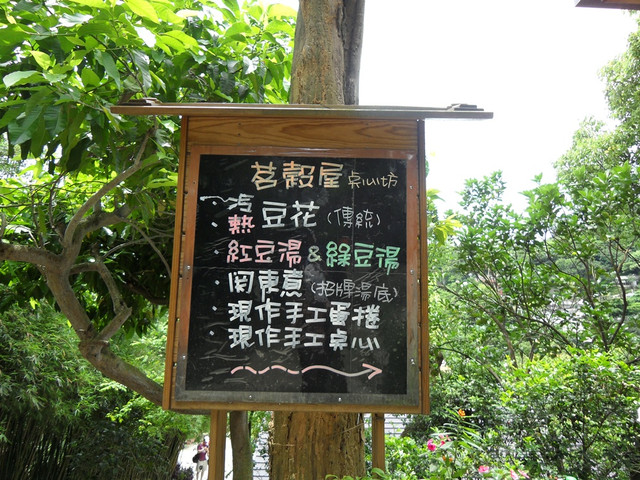 茗穀屋 点心坊
冷
熱 豆花 (傳統)
·紅豆湯&綠豆湯
·関東煮 (招牌湯底)
·現作手工蛋捲
·現作手工点心